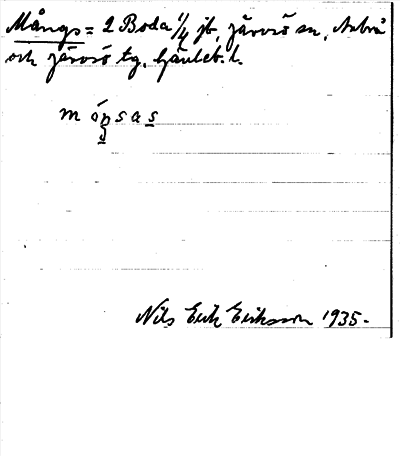 Mångs = 2 Boda 1/4 jb, järvsö sn, Arbrå
och järvsö tg. Gävleb. l.
m óŋsas
Nils Erik Eriksson 1935.